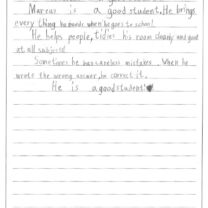 Marcus is a good student. He brings
every thing he needs when he goes to school.
He helps people, tidies his room cleanly and good
at all subjects!
Sometimes he has careless mistakes. When he
wrote the wrong answer, he correct it.
He is a good student!